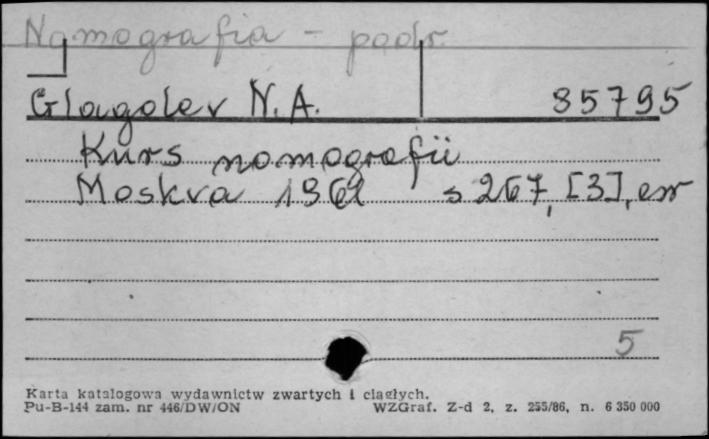 Nomografia - podr.
Glagolev N. A. 85795
Kurs nomografii
Moskva 1961 s 267, [3], err
5
Karta katalogowa wydawnictw zwartych i ciągłych.
Pu-B-144 zam. nr 446/DW/ON WZGraf. Z-d 2, z. 255/86, n. 6 350 000